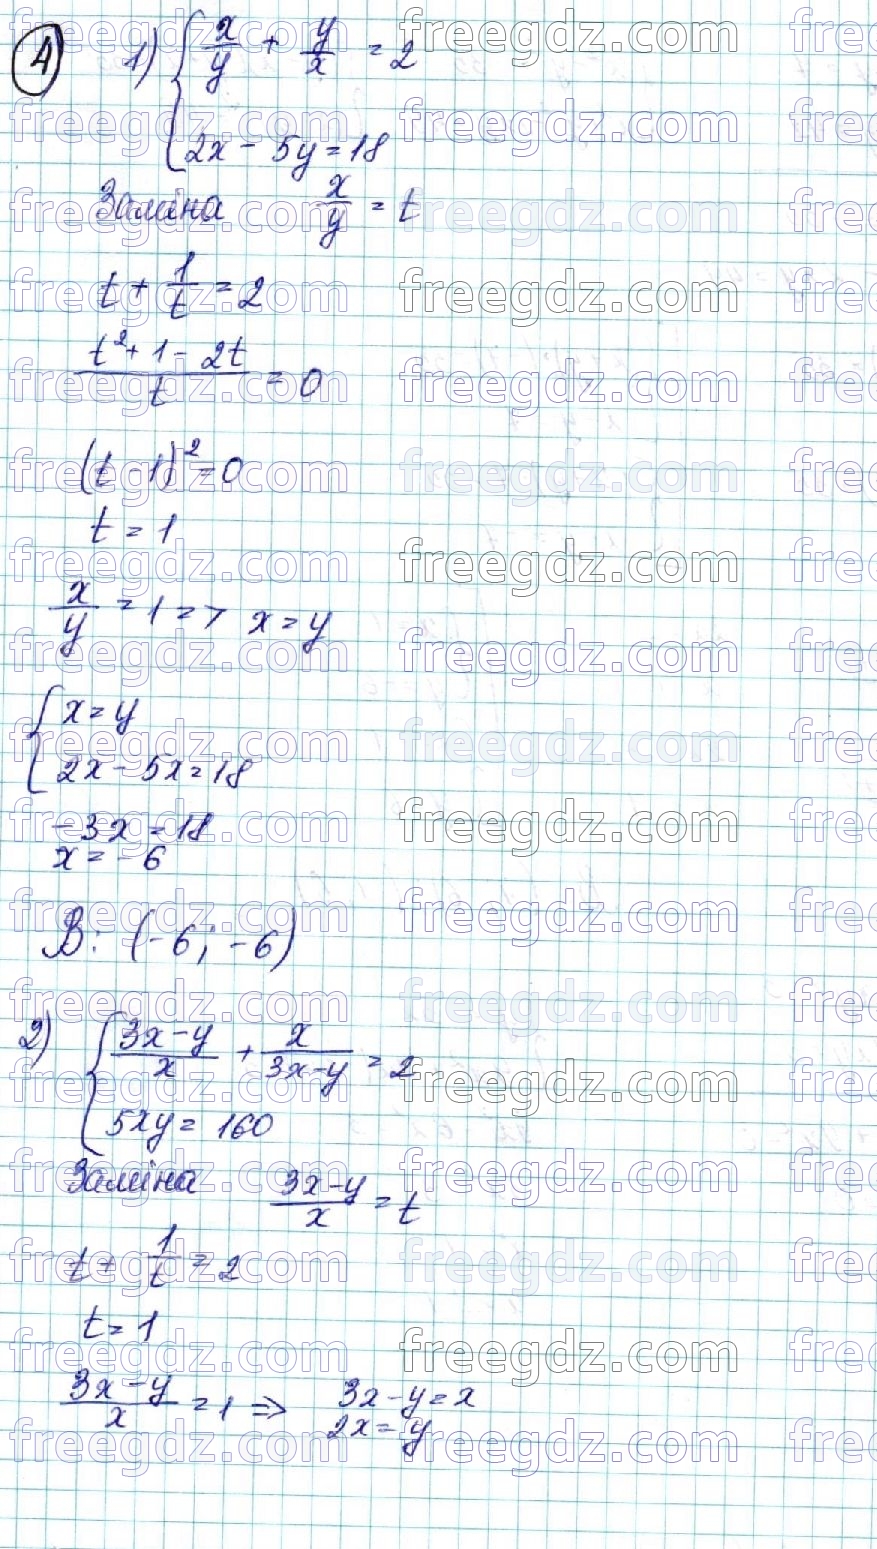 4
1) { x/y + y/x = 2
2x - 5y = 18
Заміна x/y = t
t + 1/t = 2
(t² + 1 - 2t)/t = 0
(t - 1)² = 0
t = 1
x/y = 1 => x = y
{ x = y
2x - 5x = 18
-3x = 18
x = -6
В: (-6; -6)
2) { (3x - y)/x + x/(3x - y) = 2
5xy = 160
Заміна (3x - y)/x = t
t + 1/t = 2
t = 1
(3x - y)/x = 1 => 3x - y = x
2x = y
freegdz.com